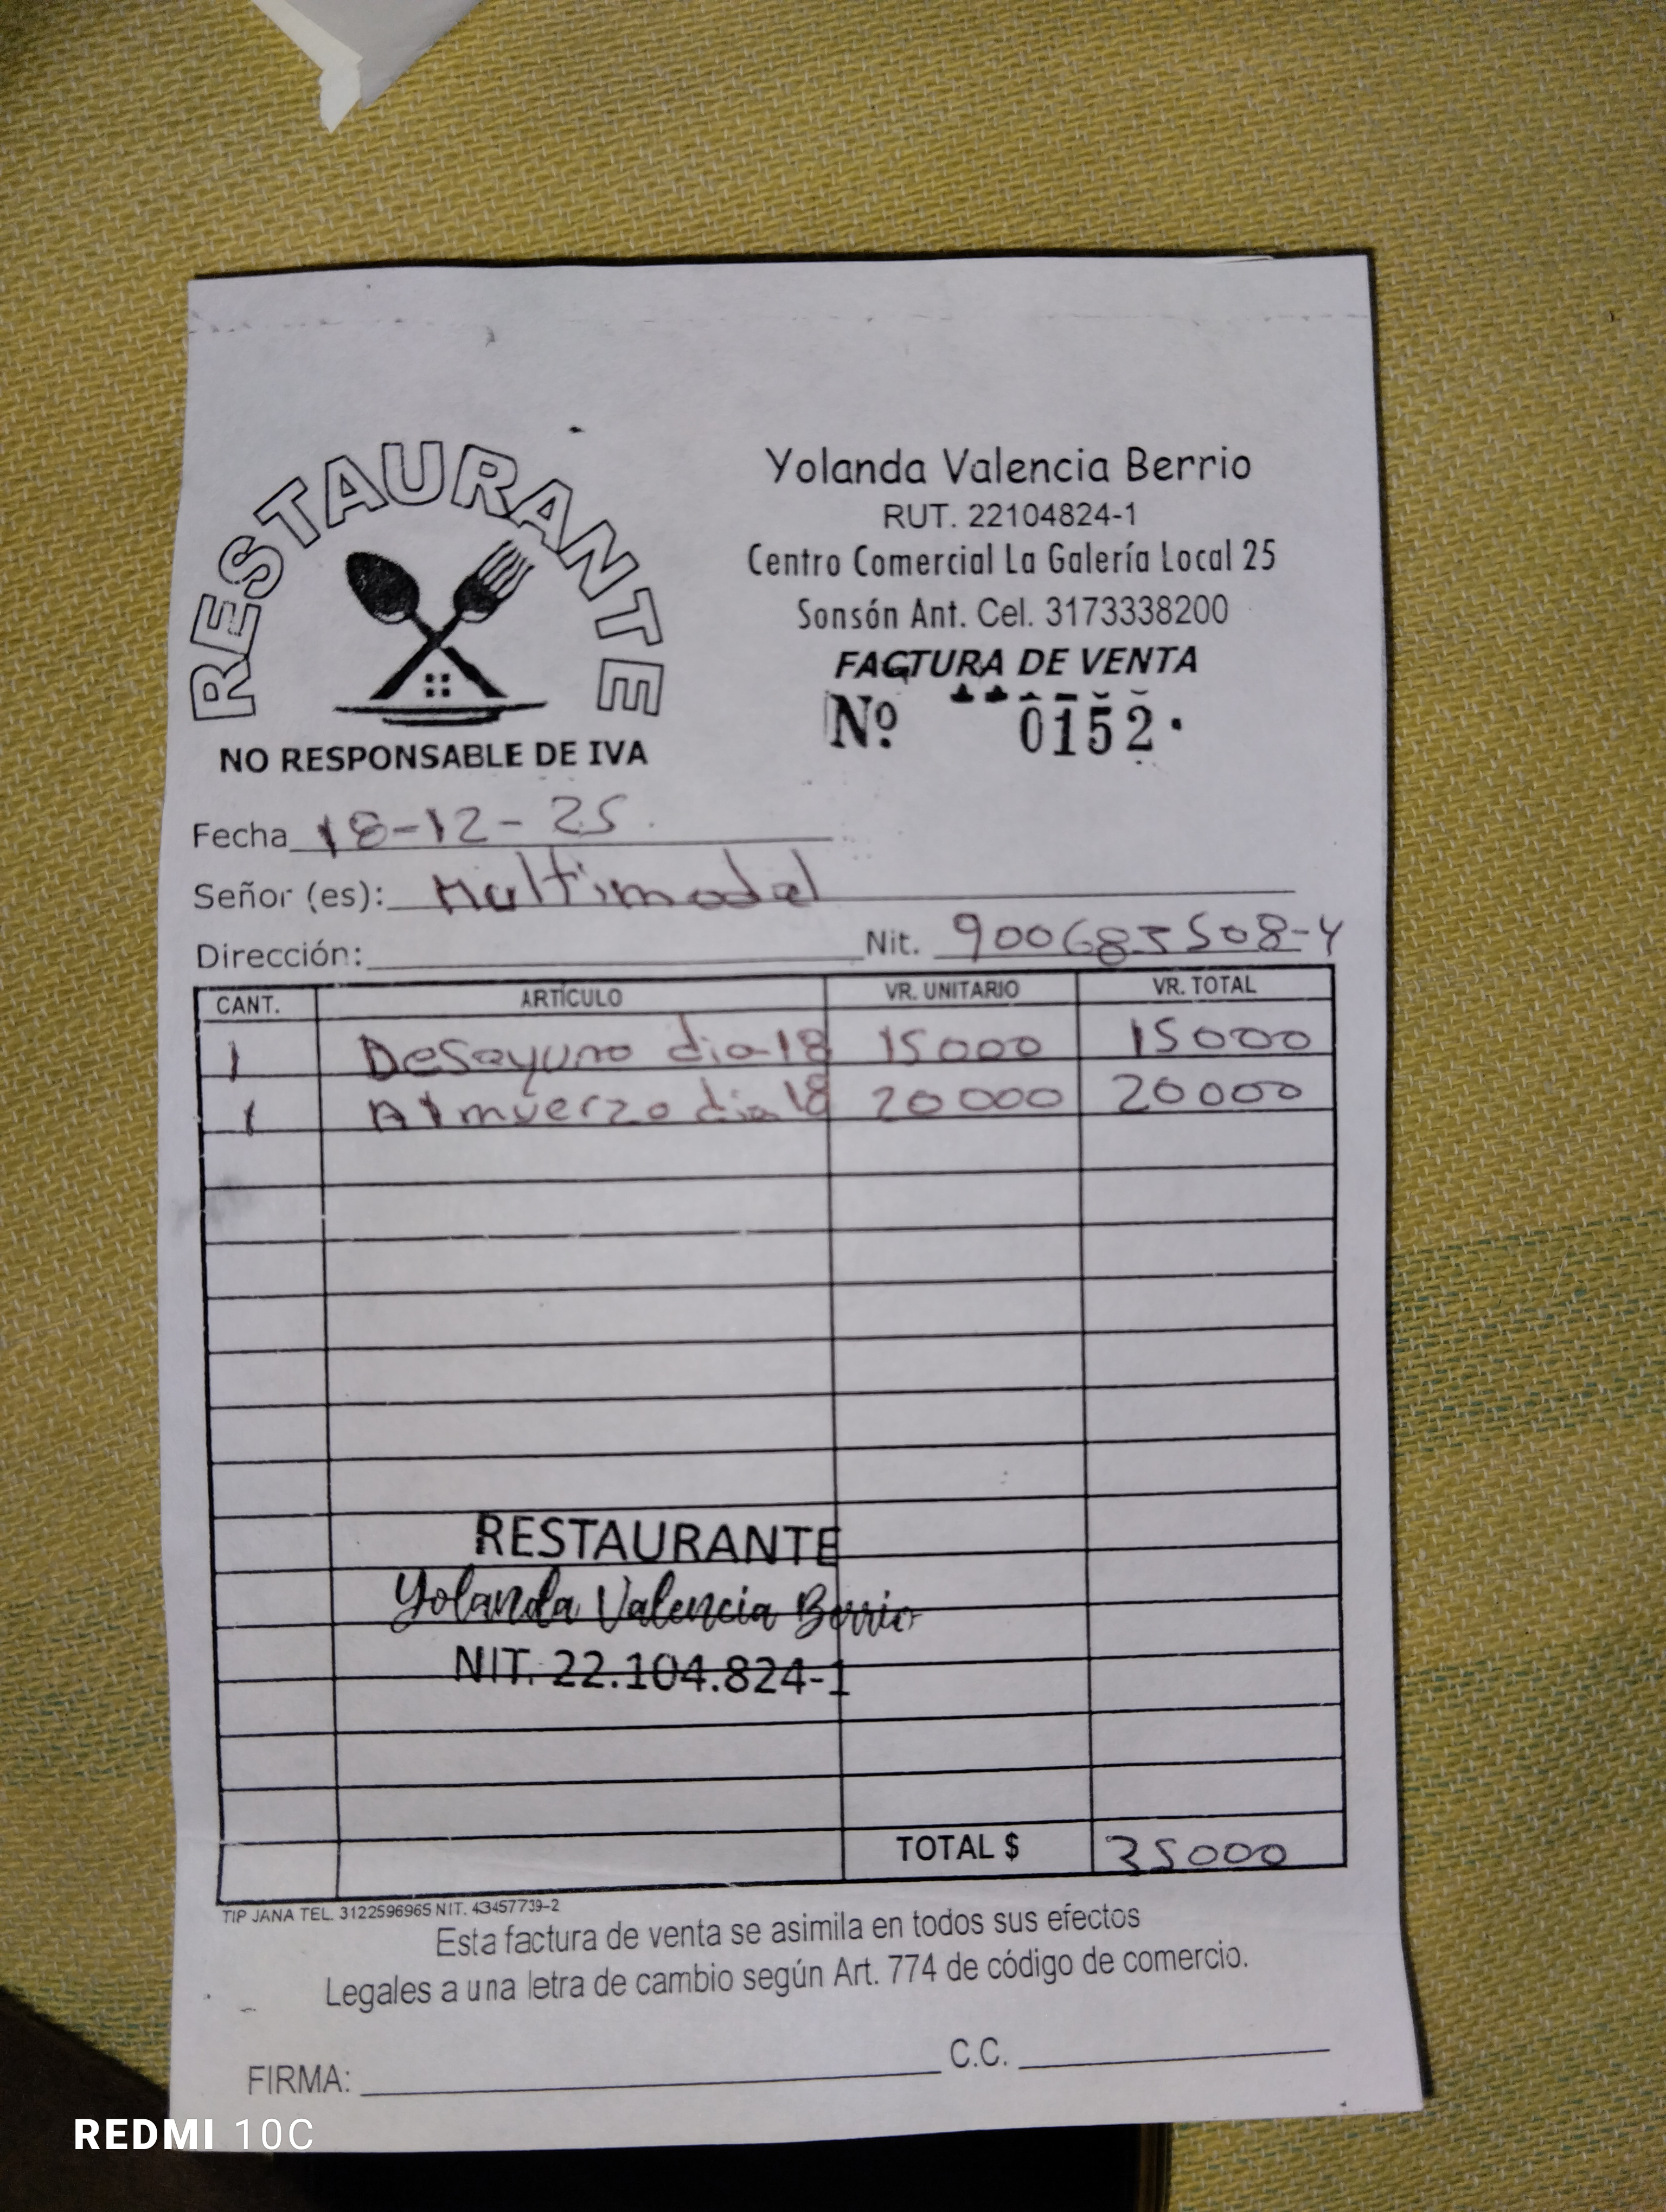 RESTAURANTE
NO RESPONSABLE DE IVA
Yolanda Valencia Berrio
RUT. 22104824-1
Centro Comercial La Galería Local 25
Sonsón Ant. Cel. 3173338200
FACTURA DE VENTA
Nº 0152
Fecha 18-12-25
Señor (es): Multimodal
Dirección: Nit. 900683508-4
CANT. ARTÍCULO VR. UNITARIO VR. TOTAL
1 Desayuno dia 18 15000 15000
1 Almuerzo dia 18 20000 20000
RESTAURANTE
Yolanda Valencia Berrio
NIT. 22.104.824-1
TOTAL $ 35000
TIP JANA TEL. 3122596965 NIT. 43457739-2
Esta factura de venta se asimila en todos sus efectos
Legales a una letra de cambio según Art. 774 de código de comercio.
FIRMA: C.C.
REDMI 10C